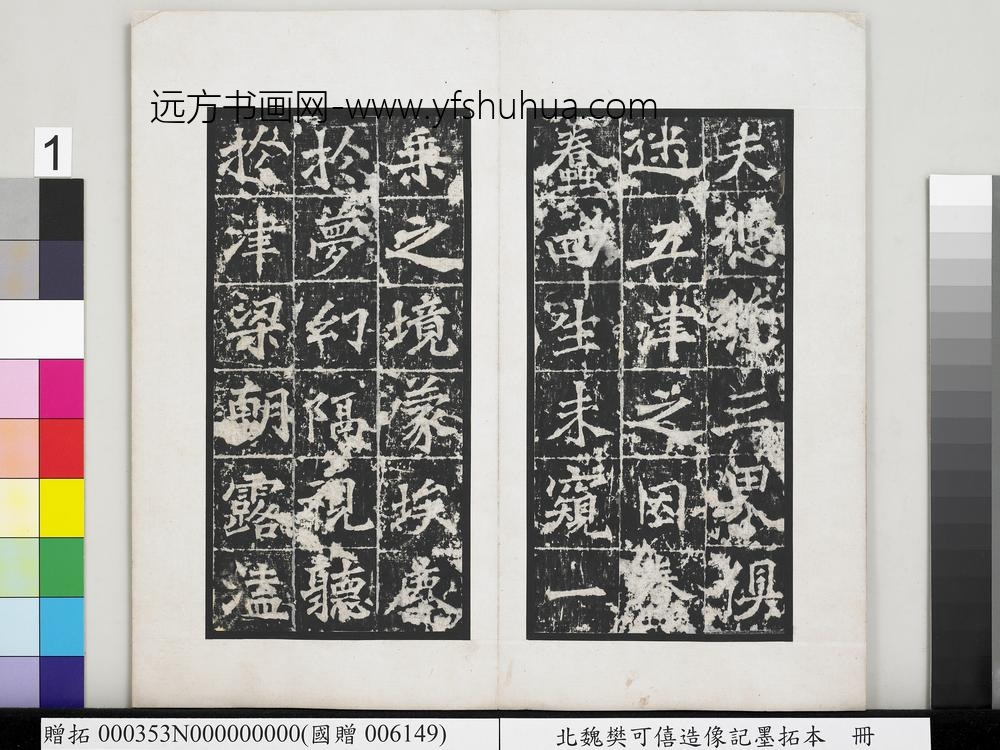 远方书画网-www.yfshuhua.com
夫三界俱
迷五津之因
蠢四生未窺一
乘之境蒙埃塵
於夢幻隔視聽
於津梁朝露溘
1
贈拓 000353N000000000(國贈 006149)
北魏樊可僖造像記墨拓本 冊